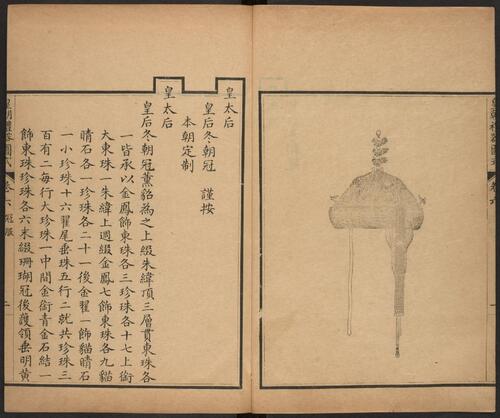 皇太后
皇后冬朝冠 謹按
本朝定制
皇太后
皇后冬朝冠薰貂為之上綴朱緯頂三層貫東珠各
一皆承以金鳳飾東珠各三珍珠各十七上銜
大東珠一朱緯上週綴金鳳七飾東珠各九貓
睛石各一珍珠各二十一後金翟一飾貓睛石
一小珍珠十六翟尾垂珠五行二就共珍珠三
百有二每行大珍珠一中間金銜青金石結一
飾東珠珍珠各六末綴珊瑚冠後護領垂明黃
皇朝禮器圖式 卷六 冠服 二